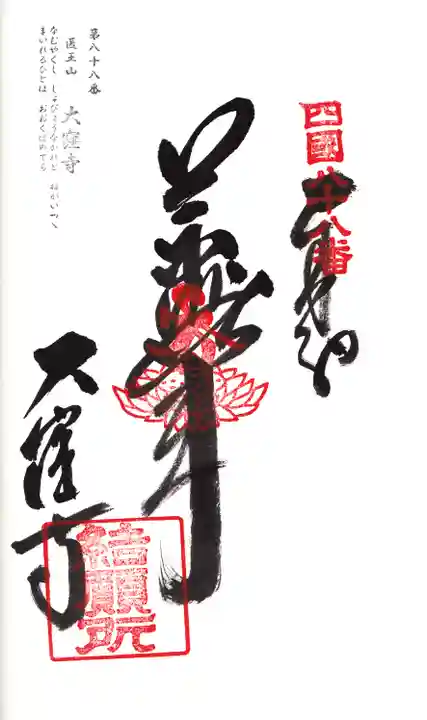 四國八十八番
奉納
大窪寺
結願所
第八十八番
医王山
大窪寺
なむやくし しよびようなかれと ねがいつつ
まいれるひとは おおくぼのてら